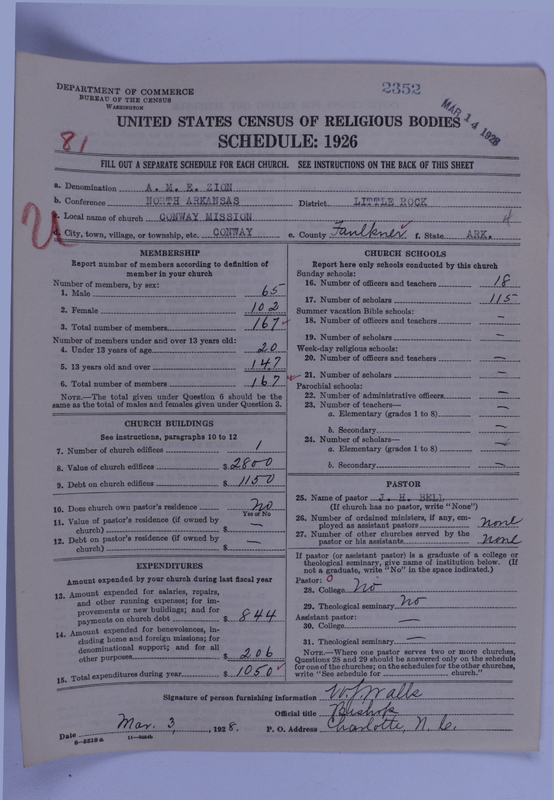 DEPARTMENT OF COMMERCE
BUREAU OF THE CENSUS
WASHINGTON
2352
MAR 14 1928
UNITED STATES CENSUS OF RELIGIOUS BODIES
SCHEDULE: 1926
81
FILL OUT A SEPARATE SCHEDULE FOR EACH CHURCH. SEE INSTRUCTIONS ON THE BACK OF THIS SHEET
a. Denomination A. M. E. ZION
b. Conference NORTH ARKANSAS District LITTLE ROCK
c. Local name of church CONWAY MISSION
d. City, town, village, or township, etc. CONWAY e. County Faulkner f. State ARK.
U
MEMBERSHIP
Report number of members according to definition of
member in your church
Number of members, by sex:
1. Male 65
2. Female 102
3. Total number of members 167
Number of members under and over 13 years old:
4. Under 13 years of age 20
5. 13 years old and over 147
6. Total number of members 167
NOTE.—The total given under Question 6 should be the
same as the total of males and females given under Question 3.
CHURCH BUILDINGS
See instructions, paragraphs 10 to 12
7. Number of church edifices 1
8. Value of church edifices $ 2800
9. Debt on church edifices $ 1150
10. Does church own pastor's residence No
Yes or No
11. Value of pastor's residence (if owned by
church) $ —
12. Debt on pastor's residence (if owned by
church) $ —
EXPENDITURES
Amount expended by your church during last fiscal year
13. Amount expended for salaries, repairs,
and other running expenses; for im-
provements or new buildings; and for
payments on church debt $ 844
14. Amount expended for benevolences, in-
cluding home and foreign missions; for
denominational support; and for all
other purposes $ 206
15. Total expenditures during year $ 1050
CHURCH SCHOOLS
Report here only schools conducted by this church
Sunday schools:
16. Number of officers and teachers 18
17. Number of scholars 115
Summer vacation Bible schools:
18. Number of officers and teachers —
19. Number of scholars —
Week-day religious schools:
20. Number of officers and teachers —
21. Number of scholars —
Parochial schools:
22. Number of administrative officers —
23. Number of teachers—
a. Elementary (grades 1 to 8) —
b. Secondary —
24. Number of scholars—
a. Elementary (grades 1 to 8) —
b. Secondary —
PASTOR
25. Name of pastor J. H. BELL
(If church has no pastor, write "None")
26. Number of ordained ministers, if any, em-
ployed as assistant pastors none
27. Number of other churches served by the
pastor or his assistants none
If pastor (or assistant pastor) is a graduate of a college or
theological seminary, give name of institution below. (If
not a graduate, write "No" in the space indicated.)
Pastor: 0
28. College No
29. Theological seminary No
Assistant pastor:
30. College —
31. Theological seminary —
NOTE.—Where one pastor serves two or more churches,
Questions 28 and 29 should be answered only on the schedule
for one of the churches; on the schedules for the other churches,
write "See schedule for church."
Signature of person furnishing information W J Walls
Official title Bishop
Date Mar. 3, 1928. P. O. Address Charlotte, N. C.